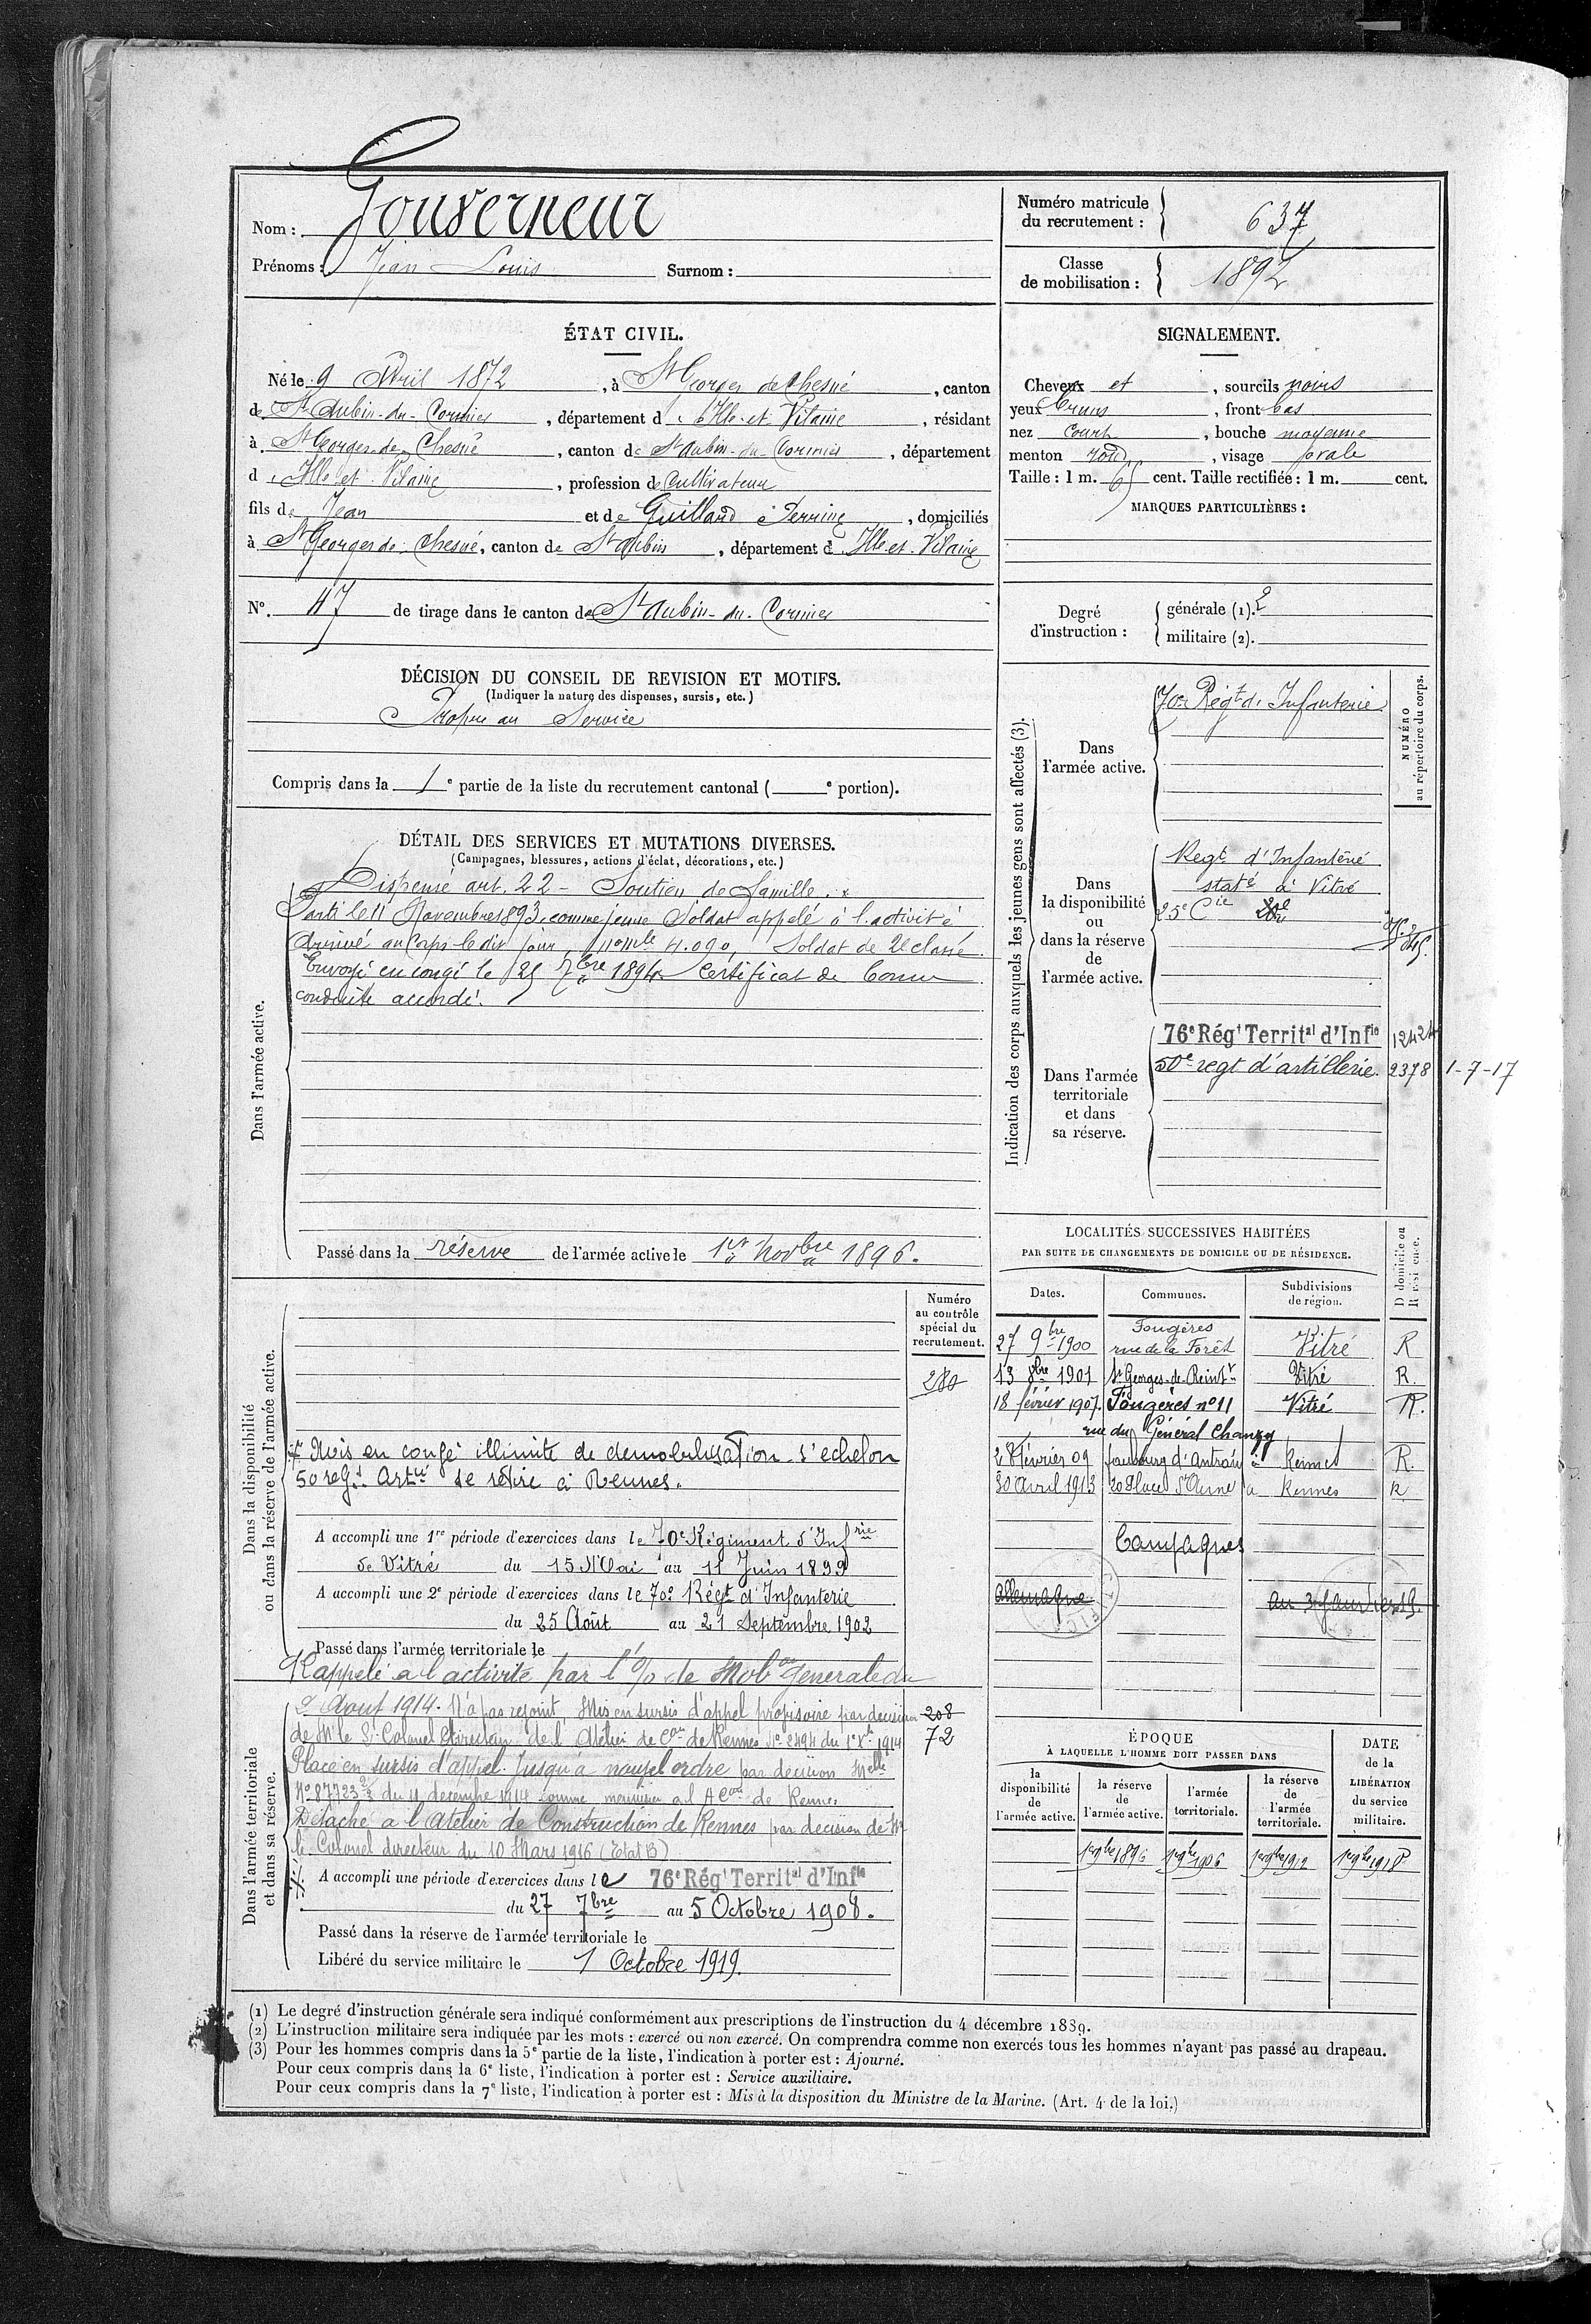 Nom : Gouverneur
Prénoms : Jean Louis Surnom :
Numéro matricule du recrutement : 637
Classe de mobilisation : 1892
ÉTAT CIVIL.
Né le 9 Avril 1872, à St Georges de Chesné, canton
de St Aubin-du-Cormier, département d'Ille-et-Vilaine, résidant
à St Georges de Chesné, canton de St Aubin-du-Cormier, département
d'Ille et Vilaine, profession de Cultivateur
fils de Jean et de Guilland Perrine, domiciliés
à St Georges de Chesné, canton de St Aubin, département d'Ille-et-Vilaine
No. 47 de tirage dans le canton de St Aubin-du-Cormier
SIGNALEMENT.
Cheveux et, sourcils noirs
yeux bruns, front bas
nez court, bouche moyenne
menton rond, visage ovale
Taille : 1 m. 65 cent. Taille rectifiée : 1 m. cent.
MARQUES PARTICULIÈRES :
Degré d'instruction : générale (1). 2
militaire (2).
DÉCISION DU CONSEIL DE REVISION ET MOTIFS.
(Indiquer la nature des dispenses, sursis, etc.)
Propre au Service
Compris dans la 1e partie de la liste du recrutement cantonal ( e portion).
DÉTAIL DES SERVICES ET MUTATIONS DIVERSES.
(Campagnes, blessures, actions d'éclat, décorations, etc.)
Dans l'armée active.
Dispensé art. 22 - Soutien de famille. x
Parti le 11 Novembre 1893, comme jeune Soldat appelé à l'activité
Arrivé au Corps le dit jour, no mle 4.090, Soldat de 2e classe
Envoyé en congé le 25 7bre 1894 Certificat de bonne
conduite accordé.
Passé dans la réserve de l'armée active le 1er Novbre 1896.
Indication des corps auxquels les jeunes gens sont affectés (3).
NUMÉRO au répertoire du corps.
Dans l'armée active.
70e Régt d'Infanterie
Dans la disponibilité ou dans la réserve de l'armée active.
Regt d'Infanterie
staté à Vitré
25e Cie
Dans l'armée territoriale et dans sa réserve.
76e Régt Territal d'Infie 12424
50e regt d'artillerie. 2378 1-7-17
LOCALITÉS SUCCESSIVES HABITÉES
PAR SUITE DE CHANGEMENTS DE DOMICILE OU DE RÉSIDENCE.
Dates. Communes. Subdivisions de région. D domicile ou R résidence.
27 9bre 1900 Fougères rue de la Forêt Vitré R
13 8bre 1901 St Georges-de-Reintr Vitré R.
18 février 1907. Fougères no 11 Vitré R.
rue du Général Chanzy
28 février 09 faubourg d'Antrain à Rennes R.
30 Avril 1913 20 Place Ste Anne à Rennes R
Campagnes
Allemagne
Dans la disponibilité ou dans la réserve de l'armée active.
Numéro au contrôle spécial du recrutement.
280
Mis en congé illimité de démobilisation échelon
50 regt Artie se retire à Rennes.
A accompli une 1re période d'exercices dans le 70e Régiment d'Infrie
de Vitré du 15 Mai au 11 Juin 1899
A accompli une 2e période d'exercices dans le 70e Régt d'Infanterie
du 25 Août au 21 Septembre 1902
Passé dans l'armée territoriale le
Rappelé à l'activité par l'o/o de Mobon Générale du
Dans l'armée territoriale et dans sa réserve.
2 Aout 1914. N'a pas rejoint, Mis en sursis d'appel provisoire par décision 208
de Mr le Lt Colonel Directeur de l'Atelier de Con de Rennes No 2494 du 1914 72
Placé en sursis d'appel jusqu'à nouvel ordre par décision Melle
No 87723 du 11 décembre 1914 comme menuisier à l'A Con de Rennes
Détaché à l'Atelier de Construction de Rennes par décision de Mr
le Colonel directeur du 10 Mars 1916 (Etat B)
A accompli une période d'exercices dans le 76e Régt Territal d'Infie
du 27 7bre au 5 Octobre 1908.
Passé dans la réserve de l'armée territoriale le
Libéré du service militaire le 1 Octobre 1919.
ÉPOQUE
À LAQUELLE L'HOMME DOIT PASSER DANS
la disponibilité de l'armée active. la réserve de l'armée active. l'armée territoriale. la réserve de l'armée territoriale. DATE de la LIBÉRATION du service militaire.
1er 9bre 1896 1er 9bre 1906 1er 9bre 1912 1er 9bre 1918
(1) Le degré d'instruction générale sera indiqué conformément aux prescriptions de l'instruction du 4 décembre 1889.
(2) L'instruction militaire sera indiquée par les mots : exercé ou non exercé. On comprendra comme non exercés tous les hommes n'ayant pas passé au drapeau.
(3) Pour les hommes compris dans la 5e partie de la liste, l'indication à porter est : Ajourné.
Pour ceux compris dans la 6e liste, l'indication à porter est : Service auxiliaire.
Pour ceux compris dans la 7e liste, l'indication à porter est : Mis à la disposition du Ministre de la Marine. (Art. 4 de la loi.)